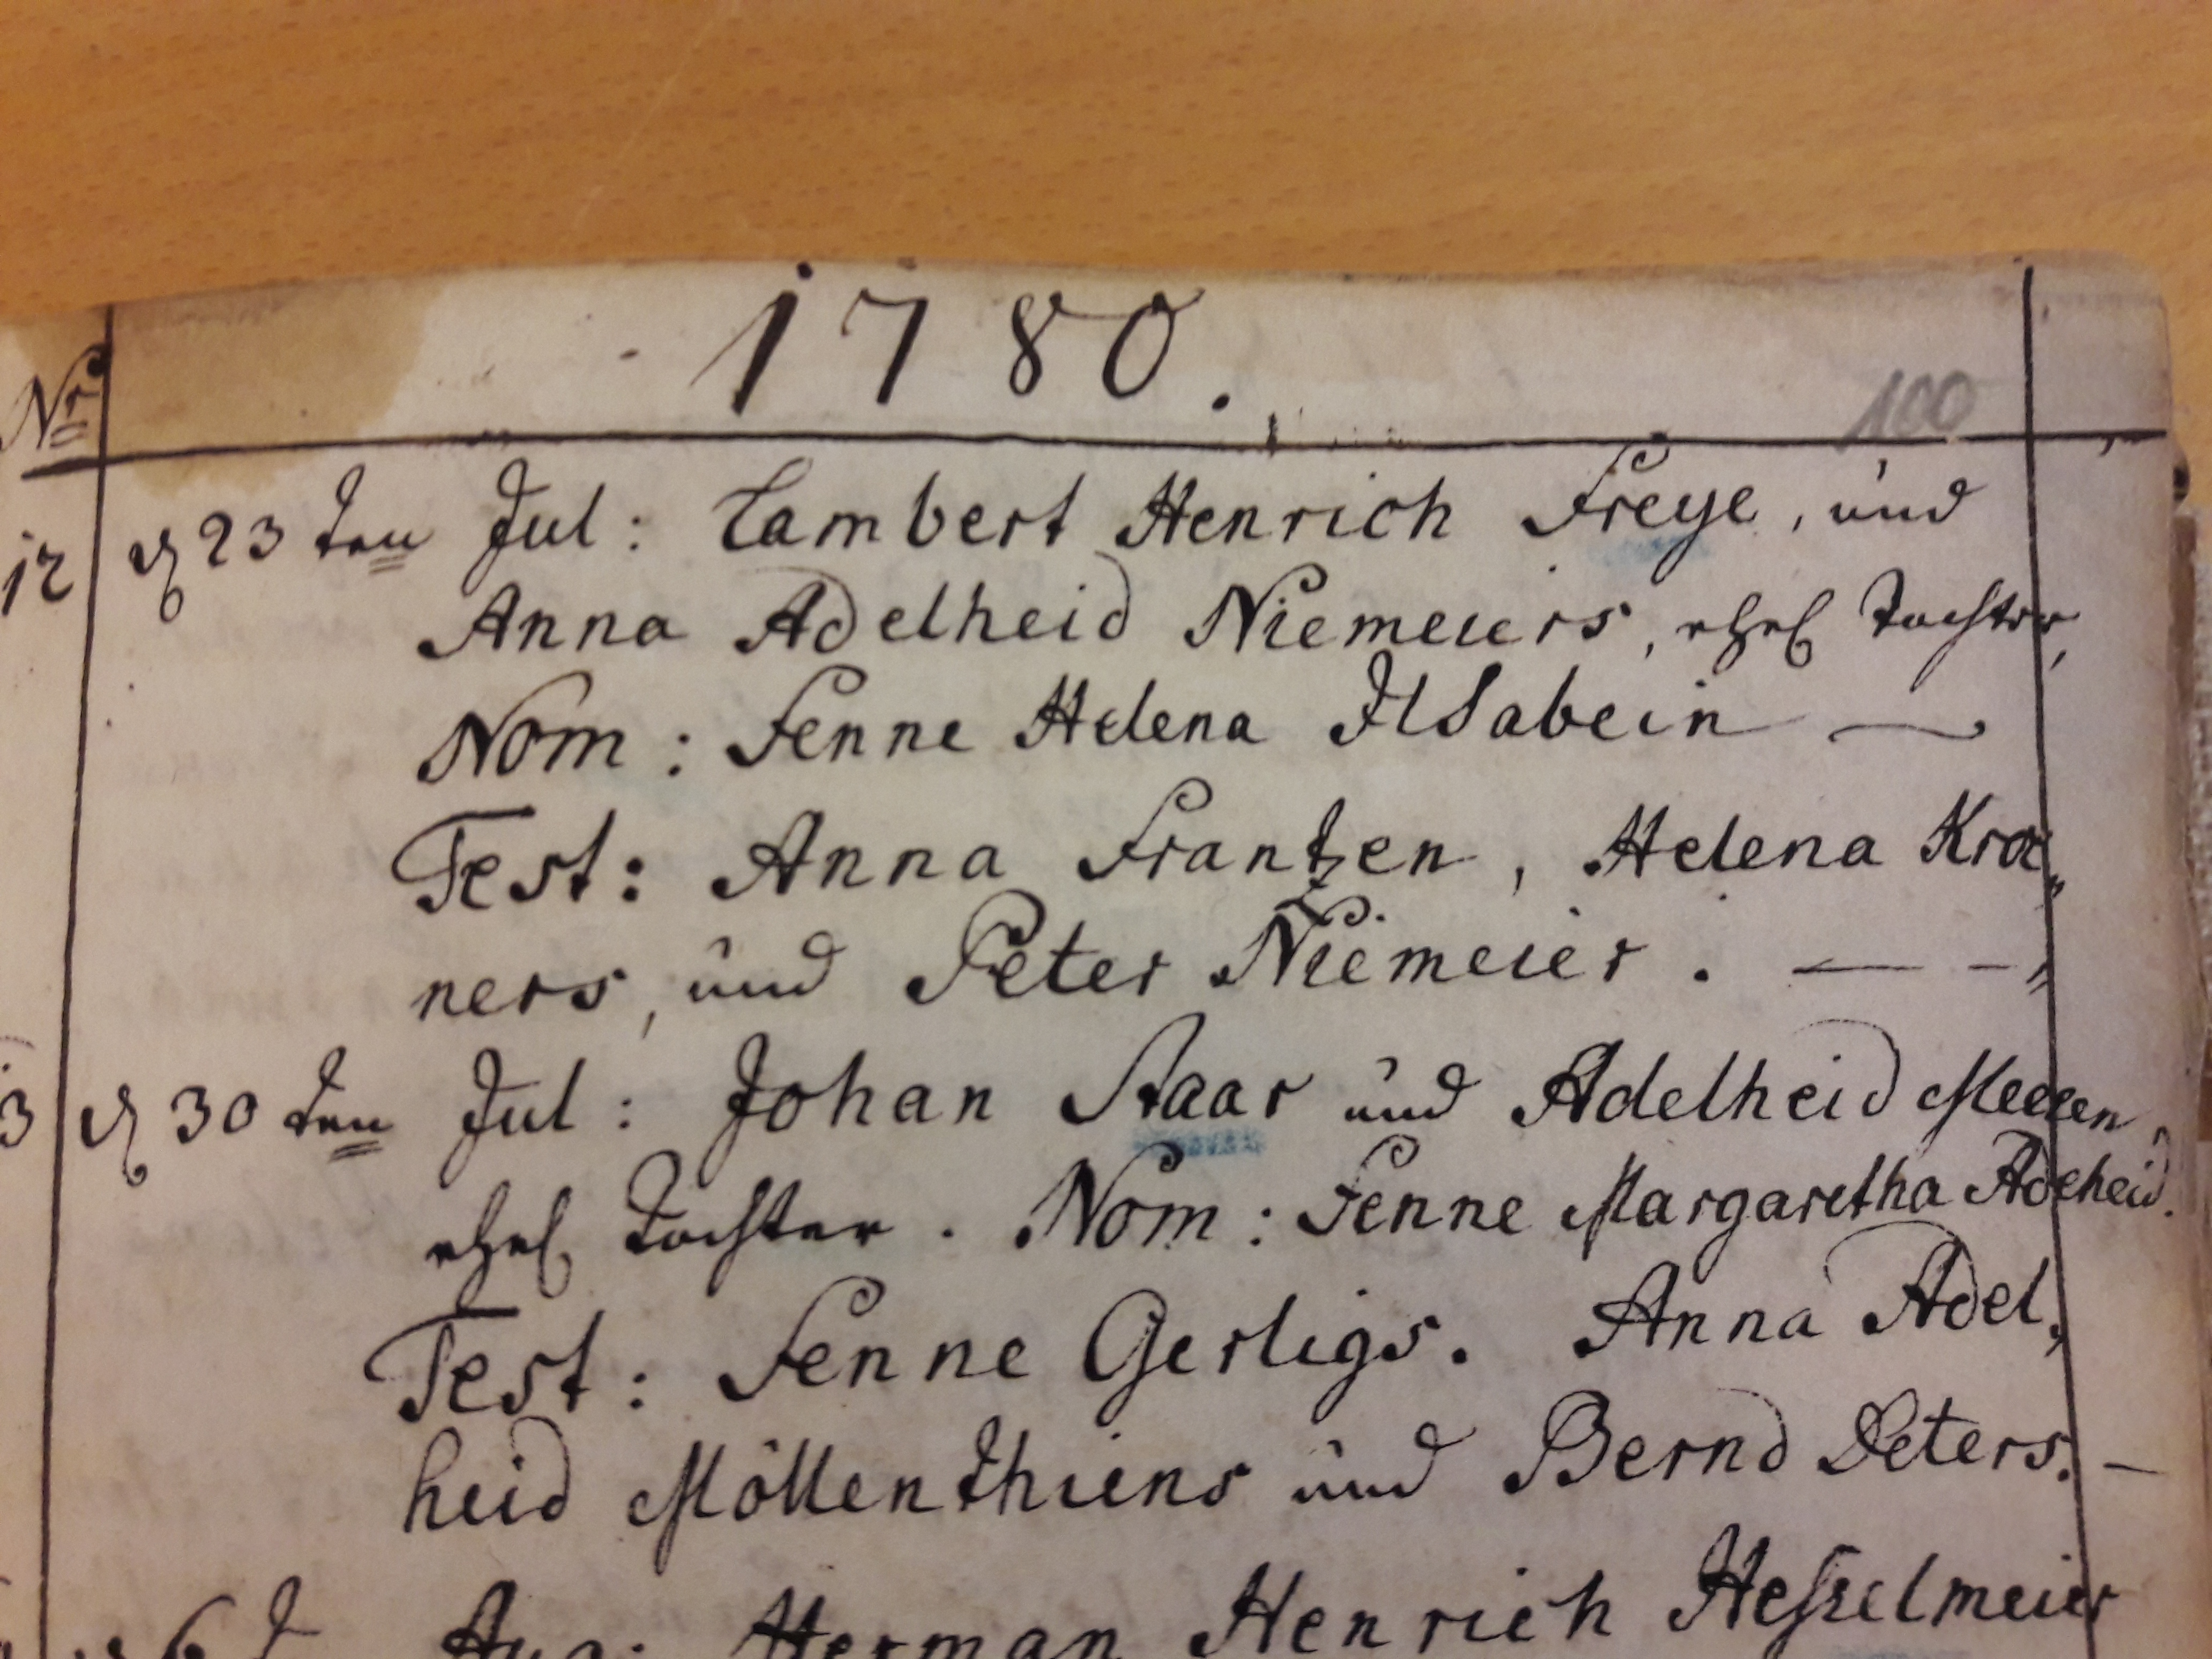 1780.
100
Nro
12 d 23 ten Jul: Lambert Henrich Freye, und
Anna Adelheid Niemeiers, ehel Tochter,
Nom: Fenne Helena Ilsabein —
Test: Anna Frantzen, Helena Kroe„
ners, und Peter Niemeier. — –„
3 d 30 ten Jul: Johan Staar und Adelheid Meesen,
ehel Tochter. Nom: Fenne Margaretha Adeheid.
Test: Fenne Gerligs. Anna Adel„
heid Möllenthiens und Bernd Peters. —
6 Aug: Herman Henrich Hesselmeier